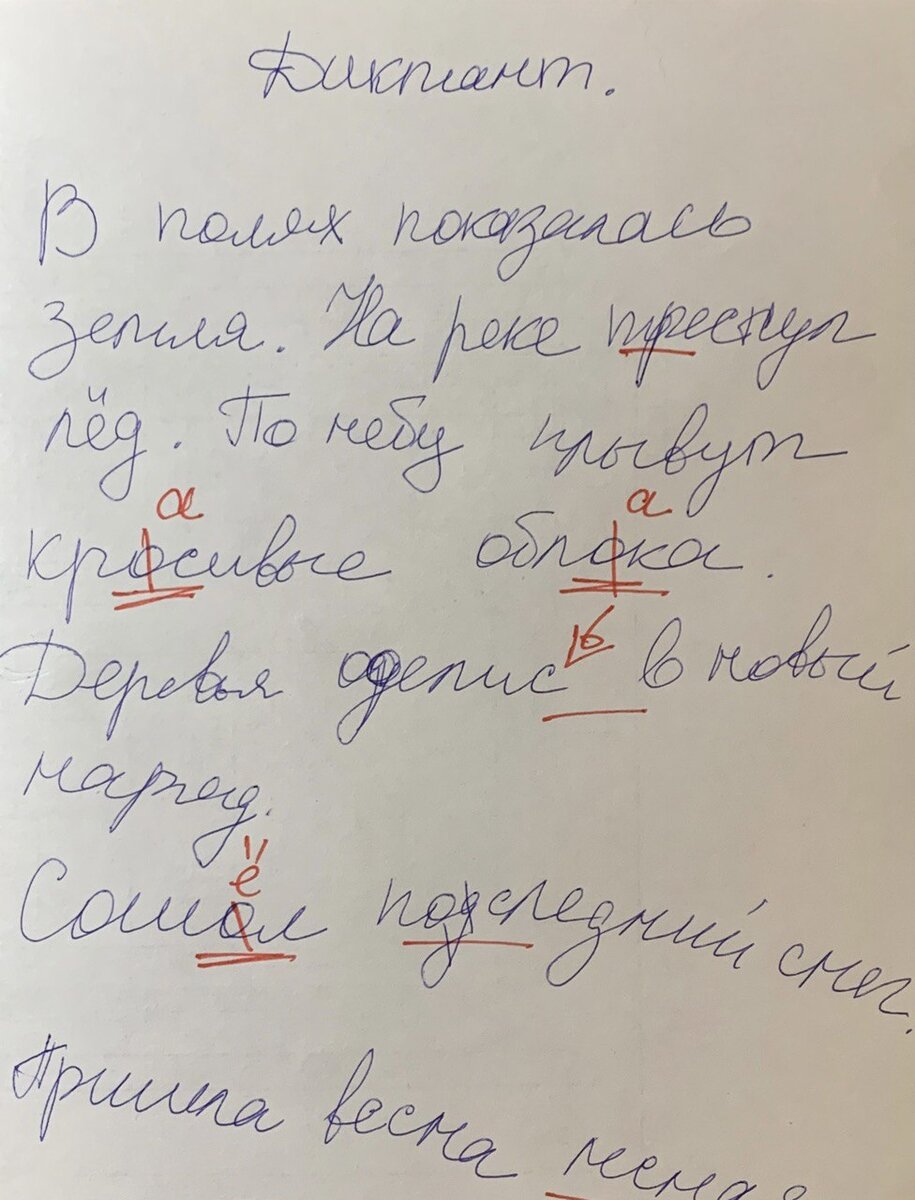 Диктант.
В полях показалась
земля. На реке треснул
лёд. По небу плывут
а а
кросивые облока.
ь
Деревья оделис в новый
наряд.
ё
Сошол последний снег.
Пришла весна